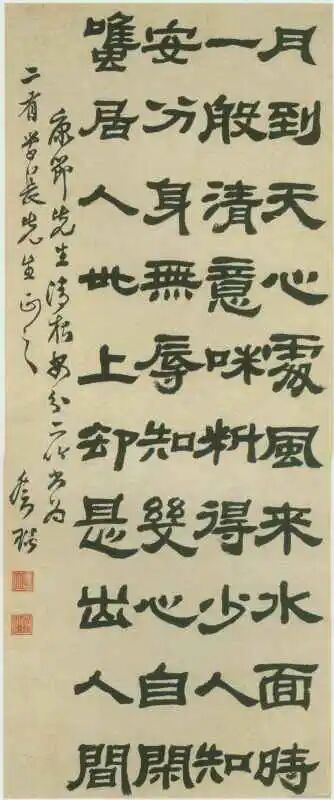 月到天心處風來水面時
一般清意味料得少人知
安分身無辱知幾心自閑
雖居人世上却是出人間
康節先生清夜安分二吟書為
二有學長先生正之